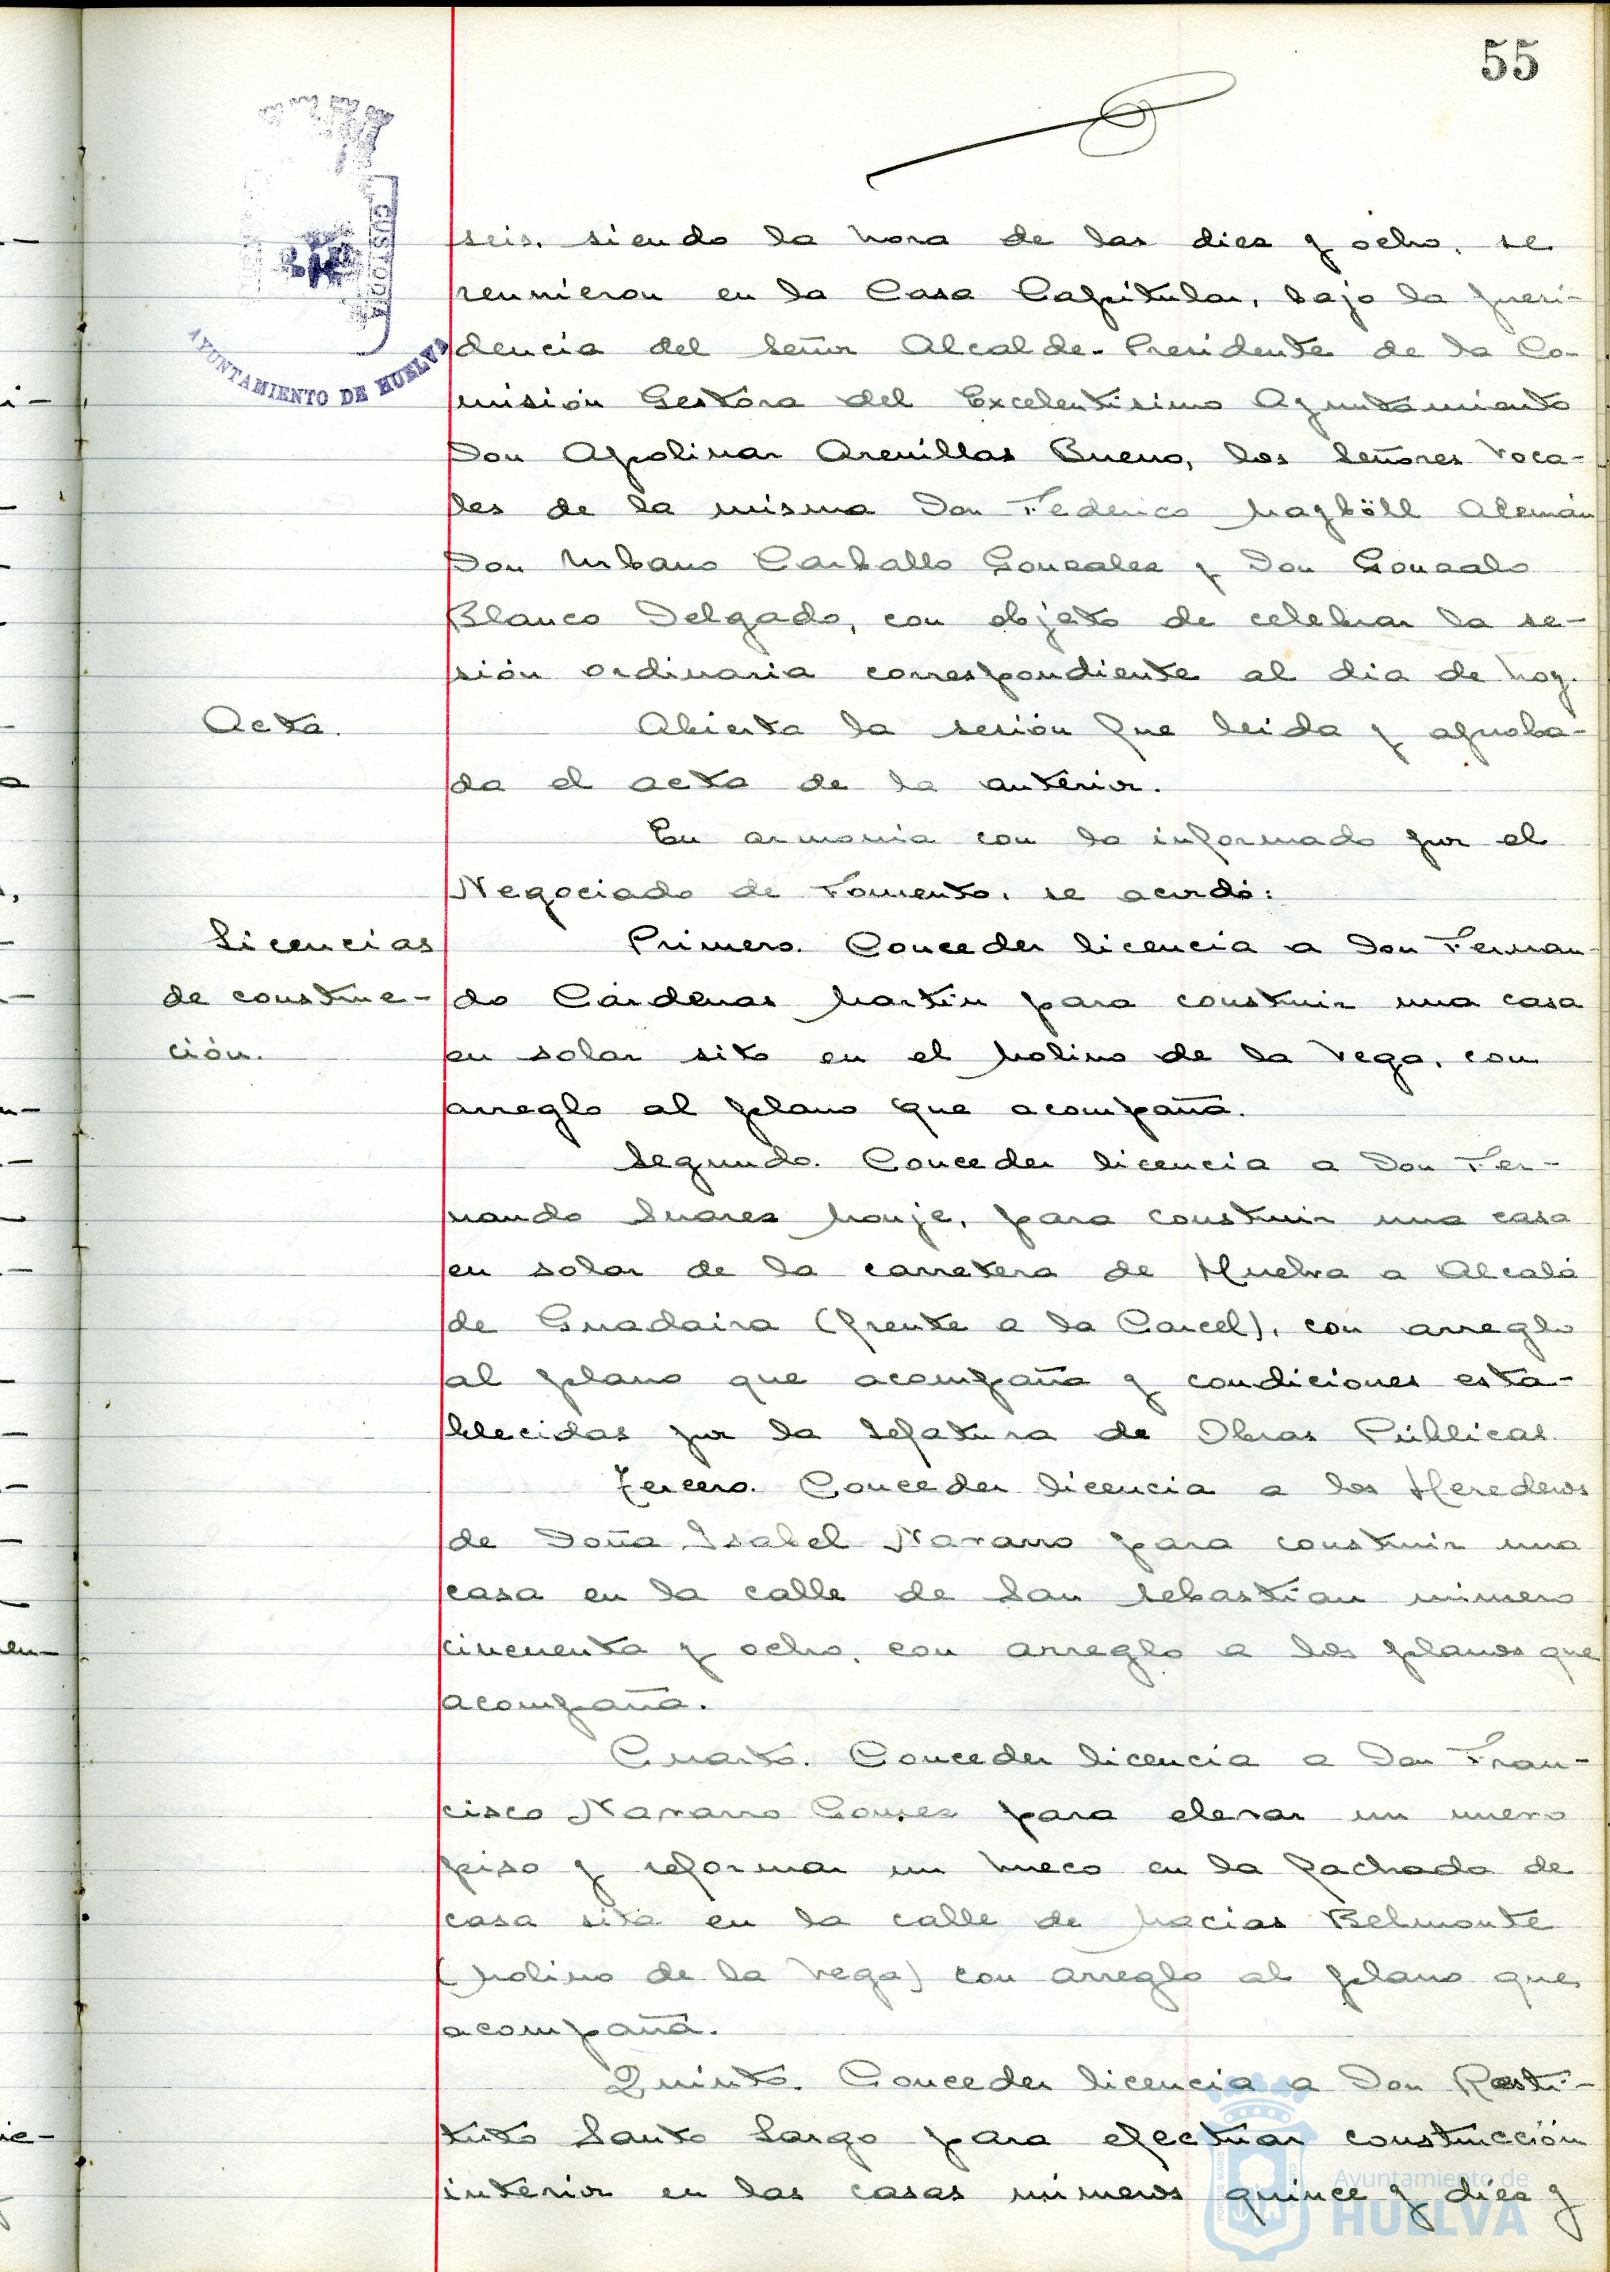 55
CUSTODIA
AYUNTAMIENTO DE HUELVA
seis, siendo la hora de las diez y ocho, se
reunieron en la Casa Capitular, bajo la presi-
dencia del Señor Alcalde-Presidente de la Co-
misión Gestora del Excelentísimo Ayuntamiento
Don Apolinar Arenillas Bueno, los Señores Voca-
les de la misma Don Federico Magböll Alemán
Don Urbano Carballo Gonzalez y Don Gonzalo
Blanco Delgado, con objeto de celebrar la se-
sión ordinaria correspondiente al dia de hoy.
Acta.
Abierta la sesión fue leida y aproba-
da el acta de la anterior.
En armonia con lo informado por el
Negociado de Fomento, se acordó:
Licencias
de construc-
ción.
Primero. Conceder licencia a Don Fernan-
do Cárdenas Martín para construir una casa
en solar sito en el Molino de la Vega, con
arreglo al plano que acompaña.
Segundo. Conceder licencia a Don Fer-
nando Suarez Monje, para construir una casa
en solar de la carretera de Huelva a Alcalá
de Guadaira (frente a la Carcel), con arreglo
al plano que acompaña y condiciones esta-
blecidas por la Jefatura de Obras Públicas.
Tercero. Conceder licencia a los Herederos
de Doña Isabel Navarro para construir una
casa en la calle de San Sebastian número
cincuenta y ocho, con arreglo a los planos que
acompaña.
Cuarto. Conceder licencia a Don Fran-
cisco Navarro Gomez para elevar un nuevo
piso y reformar un hueco en la fachada de
casa sita en la calle de Macias Belmonte
(Molino de la Vega) con arreglo al plano que
acompaña.
Quinto. Conceder licencia a Don Resti-
tuto Santo Largo para efectuar construcción
interior en las casas números quince y diez y
Ayuntamiento de
HUELVA